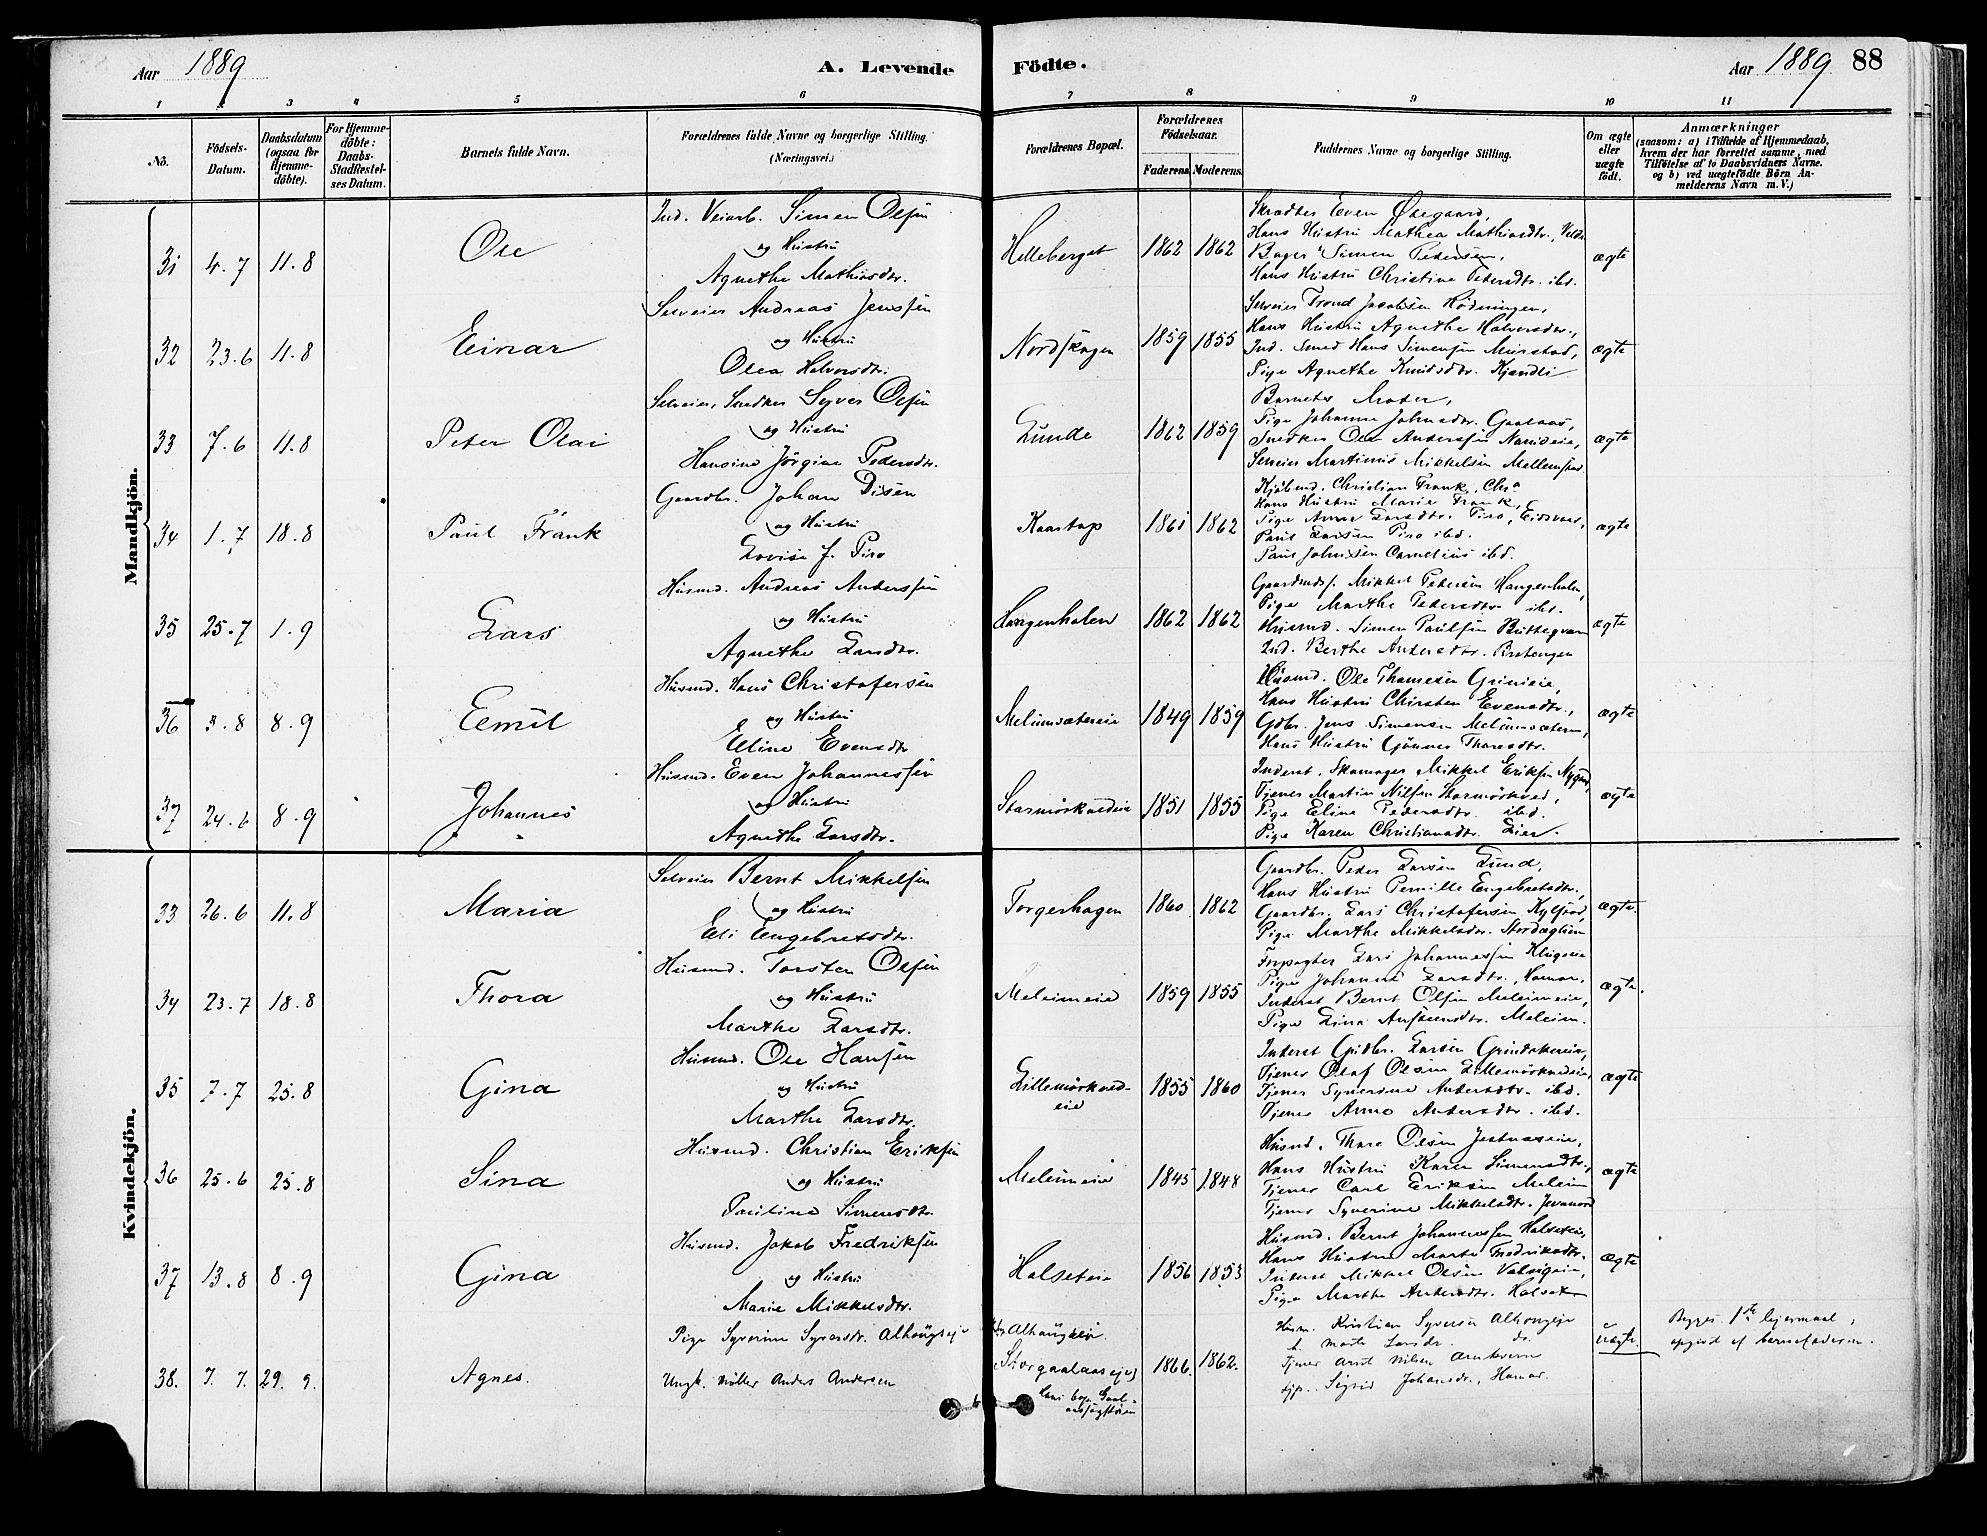 Aar 1889
A. Levende
Födte.
Aar 1889
88
1 2 3 4 5 6
7 8 9 10 11
No.
Födsels-Datum.
Daabsdatum (ogsaa for Hjemme-döbte).
For Hjemme-döbte: Daabs-Stadfestel-ses Datum.
Barnets fulde Navn.
Forældrenes fulde Navne og borgerlige Stilling.
(Næringsvei.)
Forældrenes Bopæl.
Forældrenes Födselsaar.
Faderens Moderens.
Faddernes Navne og borgerlige Stilling.
Om ægte eller uægte födt.
Anmærkninger
(saasom: a) i Tilfælde af Hjemmedaab,
hvem der har forrettet samme, med
Tilföielse af to Daabsvidners Navne.
og b) ved uægtefödte Börn An-
melderens Navn m. V.)
Mandkjön.
31 4.7 11.8 Ole
Ind. Veiarb. Simen Olsen
og Hustru
Agnethe Mathiasdtr.
Helleberget 1862 1862
Skrædder Even Østgaard,
Hans Hustru Mathea Mathiasdtr.,
Bager Simen Pedersen,
Hans Hustru Christine Pedersdtr. ibd.
ægte
32 23.6 11.8 Einar
Selveier Andreas Jenssen
og Hustru
Olea Halvorsdtr.
Nordskogen 1859 1855
Selveier Trond Jacobsen Rödningen,
Hans Hustru Agnethe Halvorsdtr.,
Ind. Smed Hans Simensen Murstad,
Pige Agnethe Knudsdtr. Kjendli
ægte
33 7.6 11.8 Peter Olai
Selveier, Snedker Syver Olsen
og Hustru
Hansine Jörgine Pedersdtr.
Lunde 1862 1859
Barnets Moder,
Pige Johanne Johnsdtr. Gaalaas,
Snedker Ole Anderssen
Selveier Martinus Mikkelsen
ægte
34 1.7 18.8 Paul Frank
Gaardbr. Johan Disen
og Hustru
Lovise J. Piro
Kaastap 1861 1862
Kjöbmd. Christian Frank, Chra
Hans Hustru Marie Frank,
Pige Anne Larsdtr. Piro, Eidsvold,
Paul Larsen Piro ibd.
Paul Johnsen Carnelius ibd.
ægte
35 25.7 1.9 Lars
Husmd. Andreas Anderssen
og Hustru
Agnethe Larsdtr.
Haugenhalen 1862 1862
Gaardmdsf. Mikkel Pedersen Haugenhalen,
Pige Marthe Pedersdtr. ibd.
Husmd. Simen Paulsen
Ind. Berthe Andersdtr. Bratengen
ægte
36 3.8 8.9 Eemil
Husmd. Hans Christofersen
og Hustru
Eline Evensdtr
Melumsætereie 1849 1859
Husmd. Ole Thomesen Grinieie,
Hans Hustru Chirsten Evensdtr.,
Gdbr. Jens Simensen Melumsæteren,
Hans Hustru Gönner Thoresdtr.
ægte
37 24.6 8.9 Johannes
Husmd. Even Johannessen
og Hustru
Agnethe Larsdtr.
Starmörkvedeie 1851 1855
Inderst, Skomager Mikkel Eriksen
Tjener Martin Nilsen Starmörkved,
Pige Eline Pedersdtr. ibd.
Pige Karen Christiansdtr. Lier.
ægte
Kvindekjön.
33 26.6 11.8 Maria
Selveier Bernt Mikkelsen
og Hustru
Eli Engebretsdtr.
Torgerhagen 1860 1862
Gaardbr. Peder Larsen Lund,
Hans Hustru Pernille Engebretsdtr.,
Gaardbr. Lars Christofersen
Pige Marthe Mikkelsdtr.
ægte.
34 23.7 18.8 Thora
Husmd. Torsten Olsen
og Hustru
Marthe Larsdtr.
Meleimeie 1859 1855
Forpagter Lars Johannessen
Pige Johanne Larsdtr., Hamar,
Inderst Bernt Olsen Meleimeie,
Pige Lina Austensdtr. Meleim.
ægte.
35 7.7 25.8 Gina
Husmd. Ole Hansen
og Hustru
Marthe Larsdtr.
Lillemörkved-eie 1855 1860
Inderst Gudbr. Larsen Grindakereie,
Tjener Olaf Olsen Lillemörkvedeie,
Tjener Synerine Andersdtr. ibd.
Tjener Anne Andersdtr. ibd.
ægte
36 25.6 25.8 Sina
Husmd. Christian Eriksen
og Hustru
Pauline Simensdtr.
Meleimeie 1845 1848
Husmd. Thore Olsen
Hans Hustru Karen Simensdtr.,
Tjener Carl Eriksen Meleim
Tjener Syverine Mikkelsdtr.
ægte
37 13.8 8.9 Gina
Husmd. Jakob Fredriksen
og Hustru
Marie Mikkelsdtr.
Halseteie 1856 1853
Husmd. Bernt Johannessen Halseteie,
Hans Hustru Marte Fredriksdtr.
Inderst Mikkel Olsen
Pige Marthe Andersdtr. Halset
ægte
38. 7.7. 29.9. Agnes.
Pige Syverine Syversdr. Alhaugeje
Ungk. Möller Anders Andersen
Alhaugeie
(Storgaalaaseje) 1866 1862.
Husm. Kristian Syversen Alhaugeje
h. Marte Larsdr. ds.
Tjener Arnt Nilsen Arnkvern
tjp. Sigrid Johansdr., Hamar.
Uægte.
Begges 1ste lejermaal,
opgivet af barnefaderen.